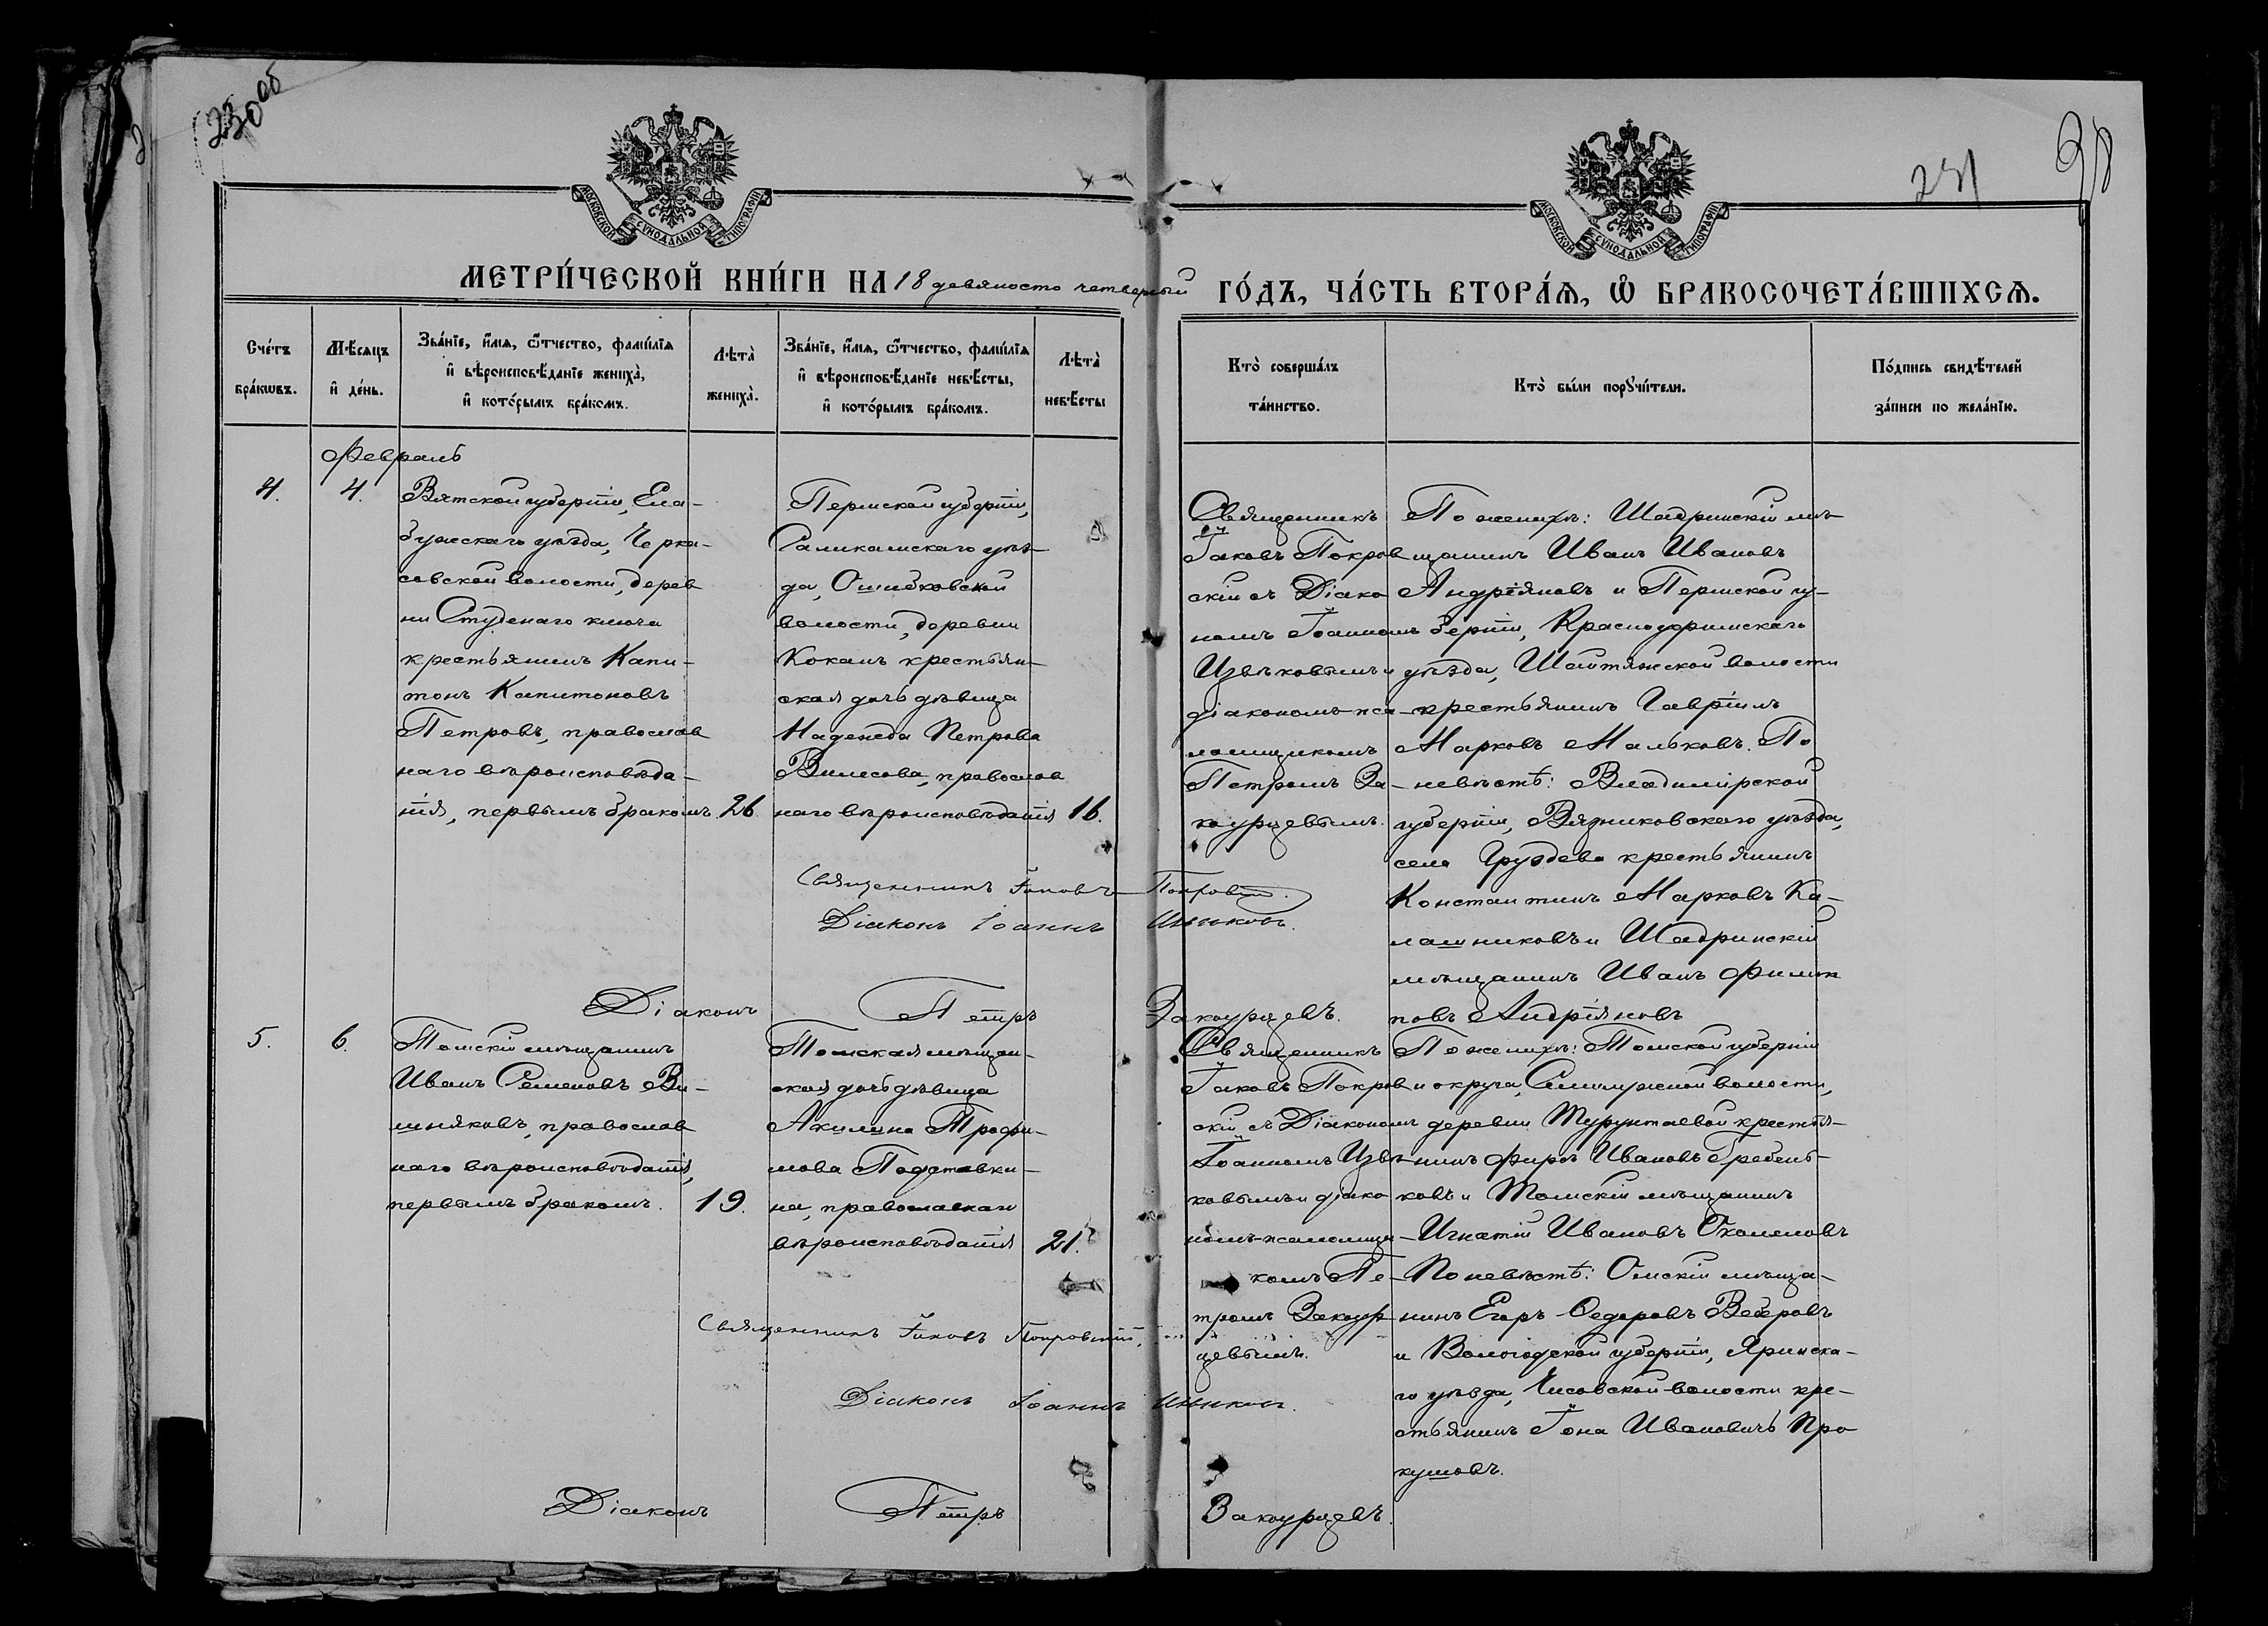 230об
231
98
МОСКОВСКОЙ СУНОДАЛЬНОЙ ТИПОГРАФІИ
МОСКОВСКОЙ СУНОДАЛЬНОЙ ТИПОГРАФІИ
МЕТРИ́ЧЕСКОЙ КНИ́ГИ НА 18 девяносто четвертый ГО́ДЪ, ЧА́СТЬ ВТОРА́Ѧ, Ѡ҆ БРАКОСОЧЕТА́ВШИХСѦ.
Сче́тъ
бра́кѡвъ.
Мѣ́сяцъ
и҆ де́нь.
Зва́нїе, и҆́мѧ, ѻ҆́тчество, фами́лїѧ
и҆ вѣроисповѣ́данїе жениха̀,
и҆ кото́рымъ бра́комъ.
Лѣта̀
жениха̀.
Зва́нїе, и҆́мѧ, ѻ҆́тчество, фами́лїѧ
и҆ вѣроисповѣ́данїе невѣ́сты,
и҆ кото́рымъ бра́комъ.
Лѣта̀
невѣ́сты
Кто̀ соверша́лъ
та́инство.
Кто̀ бы́ли порꙋчи́тели.
По́дпись свидѣ́телей
за́писи по жела́нїю.
Февраль
4.
4.
Вятской губерніи, Ела-
бужскаго уѣзда, Черка-
совской волости, дерев
ни Студенаго ключа
крестьянинъ Капи-
тонъ Капитоновъ
Петровъ, православ
наго вѣроисповѣда-
нія, первымъ бракомъ.
26.
Пермской губерніи,
Саликамскаго уѣз-
да, Ошибковской
волости, деревни
Кокань крестьян-
ская дочь дѣвица
Надежда Петрова
Вилесова, православ
наго вѣроисповѣданія
16.
Священникъ
Іаковъ Покров
скій съ Діако
номъ Іоанномъ
Извѣковымъ и
діакономъ пса-
ломщикомъ
Петромъ За-
коурцевымъ.
По женихѣ: Шадринскій мѣ-
щанинъ Иванъ Ивановъ
Андріяновъ и Пермской гу-
берніи, Красноуфимскаго
уѣзда, Шайтанской волости
крестьянинъ Гавріилъ
Марковъ Мальковъ. По
невѣстѣ: Владимірской
губерніи, Вязниковскаго уѣзда,
села Груздева крестьянинъ
Константинъ Марковъ Ка-
лашниковъ и Шадринскій
мѣщанинъ Иванъ Филип
повъ Андріяновъ
Священникъ Іаковъ Покровскій.
Діаконъ Іоаннъ Извѣковъ.
Діаконъ Петръ Закоурцевъ.
5.
6.
Томскій мѣщанинъ
Иванъ Семеновъ Ви-
шняковъ, православ
наго вѣроисповѣданія,
первымъ бракомъ.
19.
Томская мѣщан-
ская дочь дѣвица
Акилина Трофи-
мова Подставки-
на, православнаго
вѣроисповѣданія
21.
Священникъ
Іаковъ Покров
скій съ Діакономъ
Іоанномъ Извѣ-
ковымъ и діако
номъ-псаломщи-
комъ Пе-
тромъ Закоур
цевымъ.
По женихѣ: Томской губерніи
и округа, Семилужной волости,
деревни Турунтаевой крестья-
нинъ Фирсъ Ивановъ Гребень-
ковъ и Томскій мѣщанинъ
Игнатій Ивановъ
По невѣстѣ: Омскій мѣща-
нинъ Егоръ Ѳедоровъ
и Вологодской губерніи, Яренска-
го уѣзда, волости кре-
стьянинъ Іона Ивановичъ Про
кушовъ.
Священникъ Іаковъ Покровскій.
Діаконъ Іоаннъ Извѣковъ.
Діаконъ Петръ Закоурцевъ.